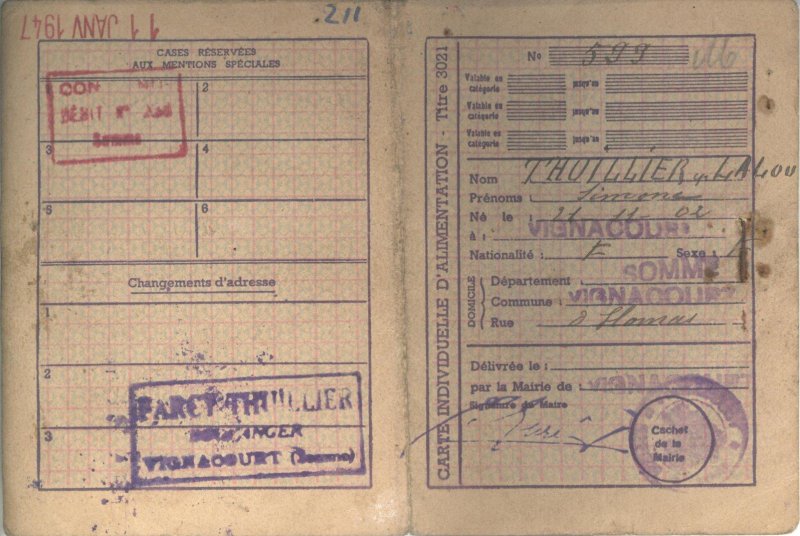 11 JANV 1947
211
CASES RÉSERVÉES
AUX MENTIONS SPÉCIALES
CON
2
DÉBIT N°
Somme
3
4
5
6
Changements d'adresse
1
2
3
PARCY-THUILLIER
BOULANGER
VIGNACOURT (Somme)
CARTE INDIVIDUELLE D'ALIMENTATION - Titre 3021
No 599
Valable en catégorie jusqu'au
Valable en catégorie jusqu'au
Valable en catégorie jusqu'au
Nom THUILLIER LALOU
Prénoms : Simone
Né le : 21 11 02
à : VIGNACOURT
Nationalité : F Sexe : F
DOMICILE
Département : SOMME
Commune : VIGNACOURT
Rue
Délivrée le :
par la Mairie de : VIGNACOURT
Signature du Maire
Cachet
de la
Mairie